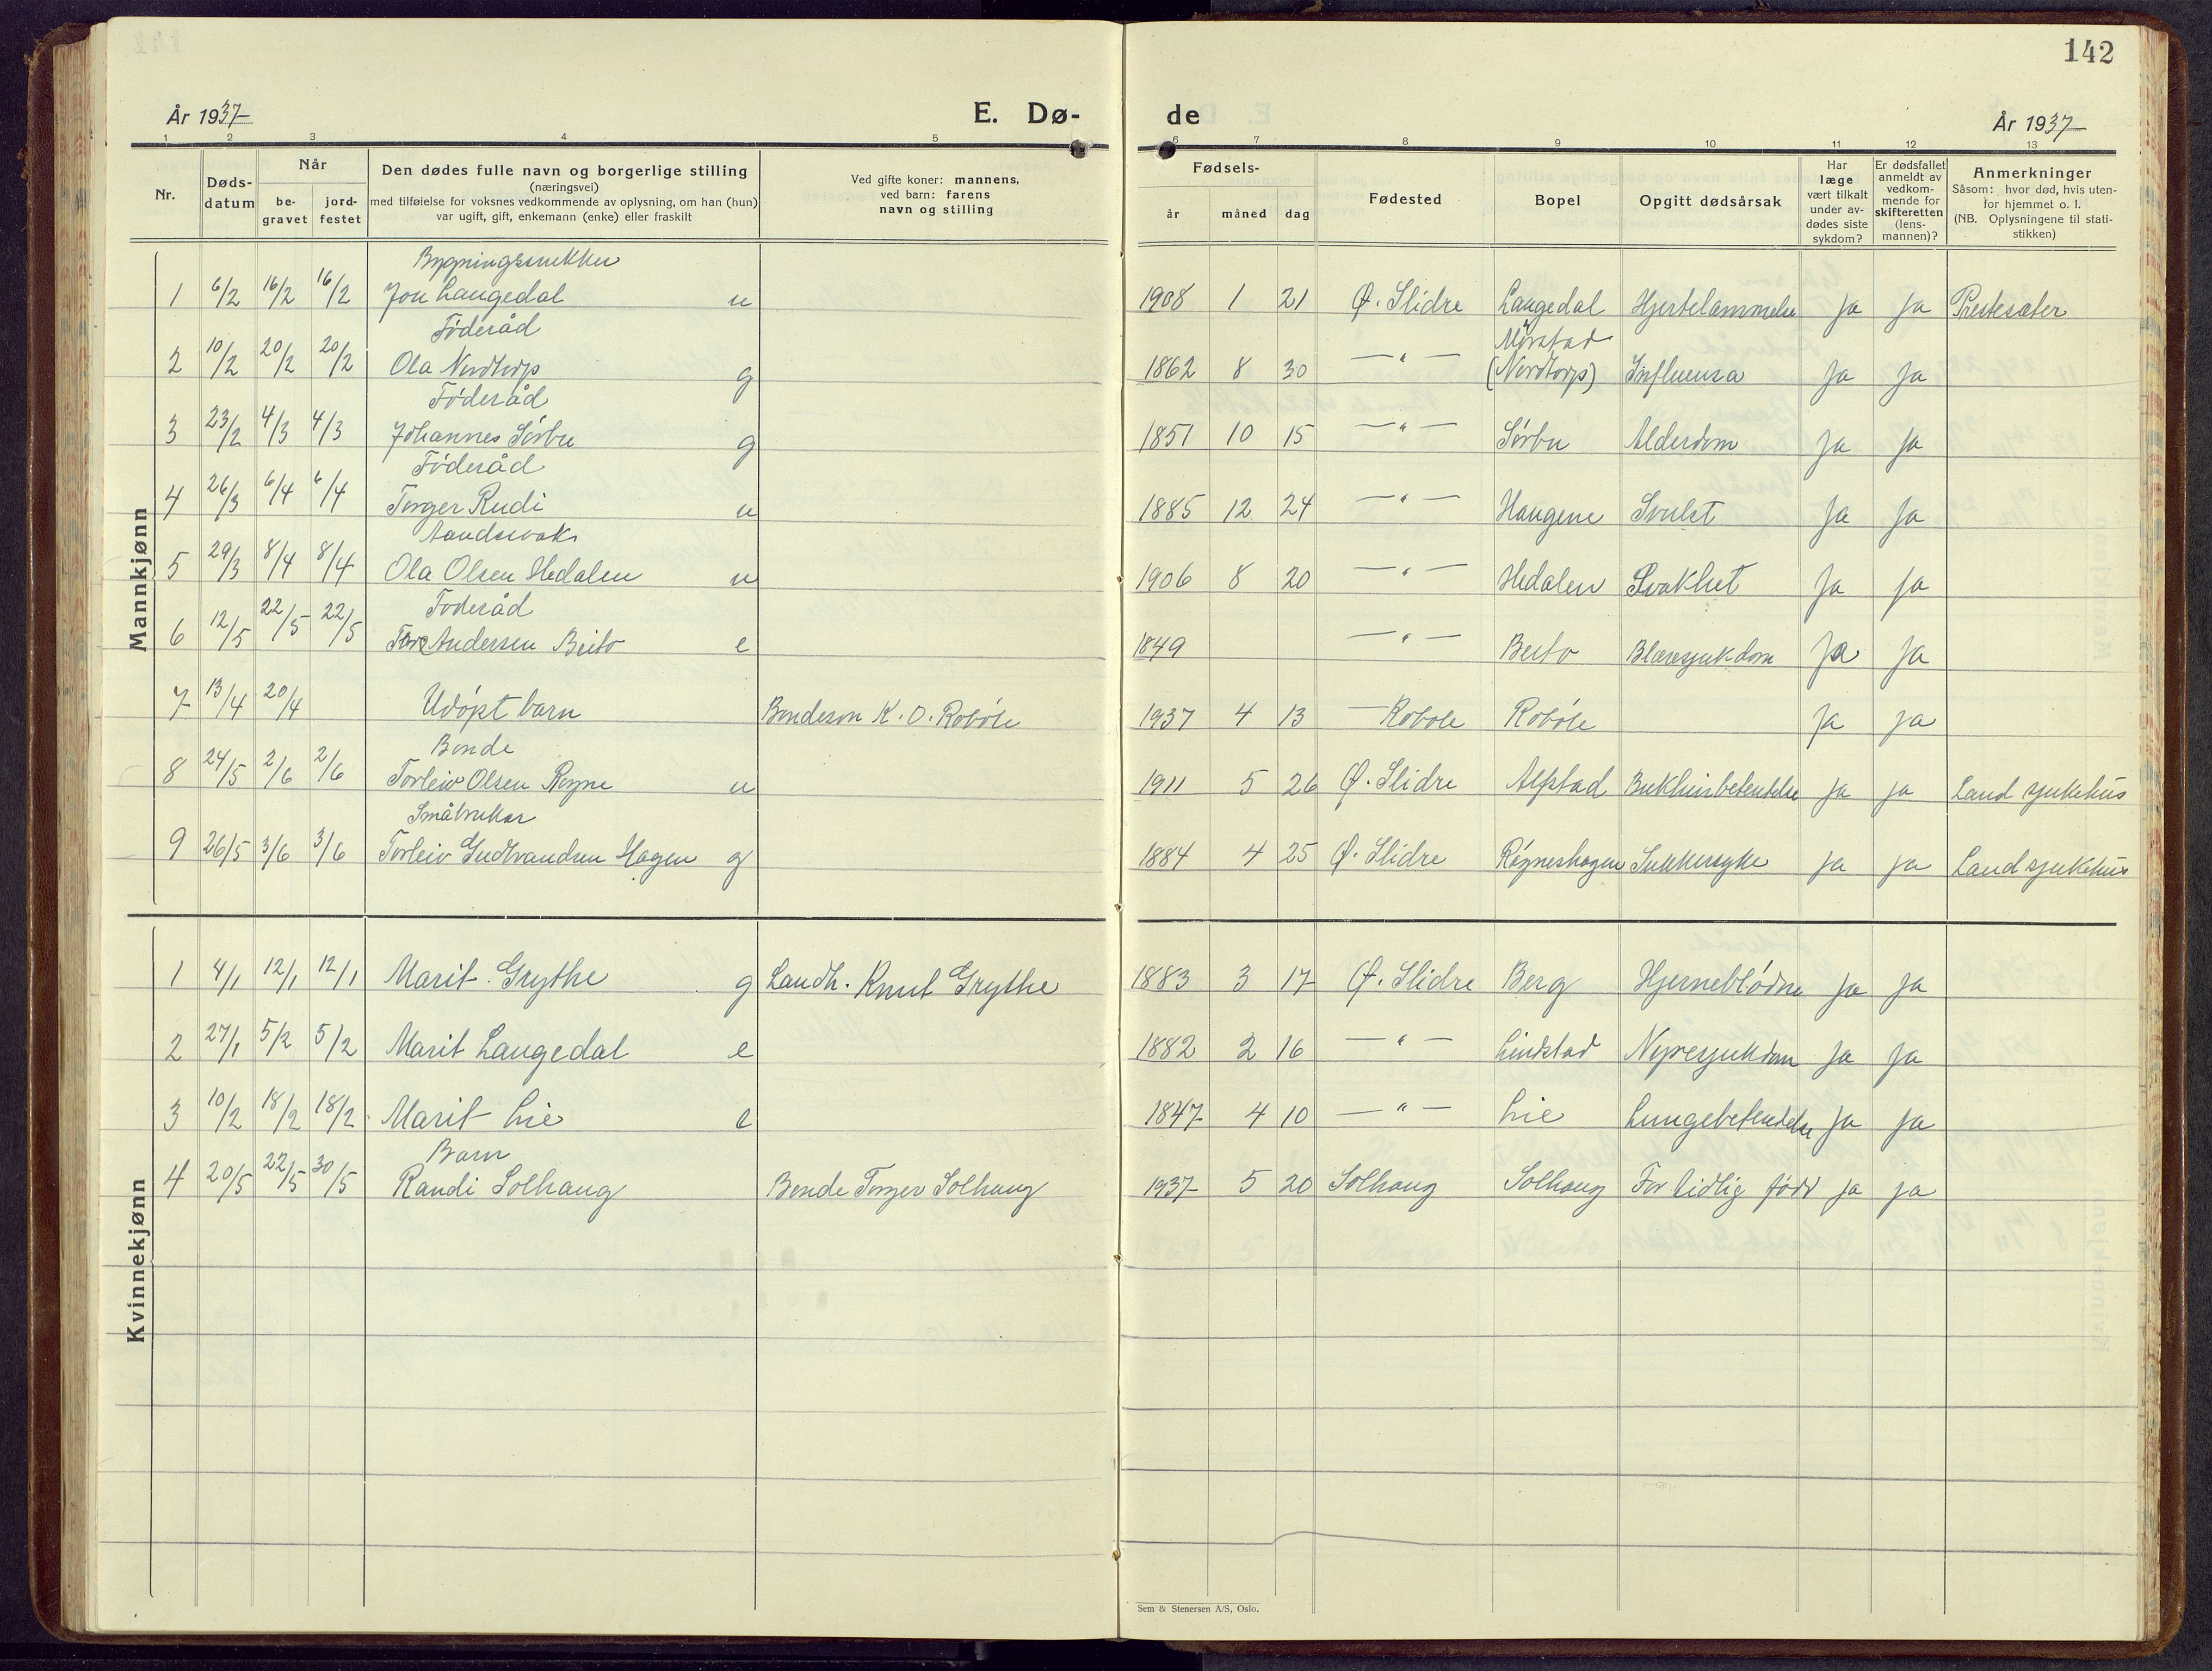 142
År 1937
E. Dø-
de
År 1937
1 2 3 4 5 6 7 8 9 10 11 12 13
Nr.
Døds-
datum
Når
be-
gravet
jord-
festet
Den dødes fulle navn og borgerlige stilling
(næringsvei)
med tilføielse for voksnes vedkommende av oplysning, om han (hun)
var ugift, gift, enkemann (enke) eller fraskilt
Ved gifte koner: mannens,
ved barn: farens
navn og stilling
Fødsels-
år måned dag
Fødested
Bopel
Opgitt dødsårsak
Har
læge
vært tilkalt
under av-
dødes siste
sykdom?
Er dødsfallet
anmeldt av
vedkom-
mende for
skifteretten
(lens-
mannen)?
Anmerkninger
Såsom: hvor død, hvis uten-
for hjemmet o. l.
(NB. Oplysningene til stati-
stikken)
Mannkjønn
Bygningssnekker
1 6/2 16/2 16/2 Jon Langedal u 1908 1 21 Ø. Slidre Langedal Hjertelammelse Ja Ja Prestesæter
Föderåd Mörstad
2 10/2 20/2 20/2 Ola Nordtorp g 1862 8 30 — " — (Nordtorp) Influensa Ja Ja
Föderåd
3 23/2 4/3 4/3 Johannes Sörbu g 1851 10 15 — " — Sörbu Alderdom Ja Ja
Föderåd
4 26/3 6/4 6/4 Torger Rudi u 1885 12 24 — " — Haugene Svulst Ja Ja
Aandssvak
5 29/3 8/4 8/4 Ola Olsen Hedalen u 1906 8 20 — " — Hedalen Svakhet Ja Ja
Foderåd
6 12/5 22/5 22/5 Tore Andersen Beito e 1849 — " — Beito Blæresjukdom Ja Ja
7 13/4 20/4 Udöpt barn Bondeson K. O. Roböle 1937 4 13 — Robole Roböle Ja Ja
Bonde
8 24/5 2/6 2/6 Torleiv Olsen Rogne u 1911 5 26 Ø. Slidre Alfstad Bukhinbetendelse Ja Ja Land sjukehus
Småbruker
9 26/5 3/6 3/6 Torleiv Gudbrandsen Hagen g 1884 4 25 Ø. Slidre Rogneshagen Sukkersyke Ja Ja Land sjukehus
Kvinnekjønn
1 4/1 12/1 12/1 Marit Grythe g Landh. Knut Grythe 1883 3 17 Ø. Slidre Berg Hjerneblödn Ja Ja
2 27/1 5/2 5/2 Marit Langedal e 1882 2 16 — " — Lindstad Nyresjukdom Ja Ja
3 10/2 18/2 18/2 Marit Lie e 1847 4 10 — " — Lie Lungebetendelse Ja Ja
Barn
4 20/5 22/5 30/5 Randi Solhaug Bonde Torger Solhaug 1937 5 20 Solhaug Solhaug For tidlig född Ja Ja
Sem & Stenersen A/S, Oslo.